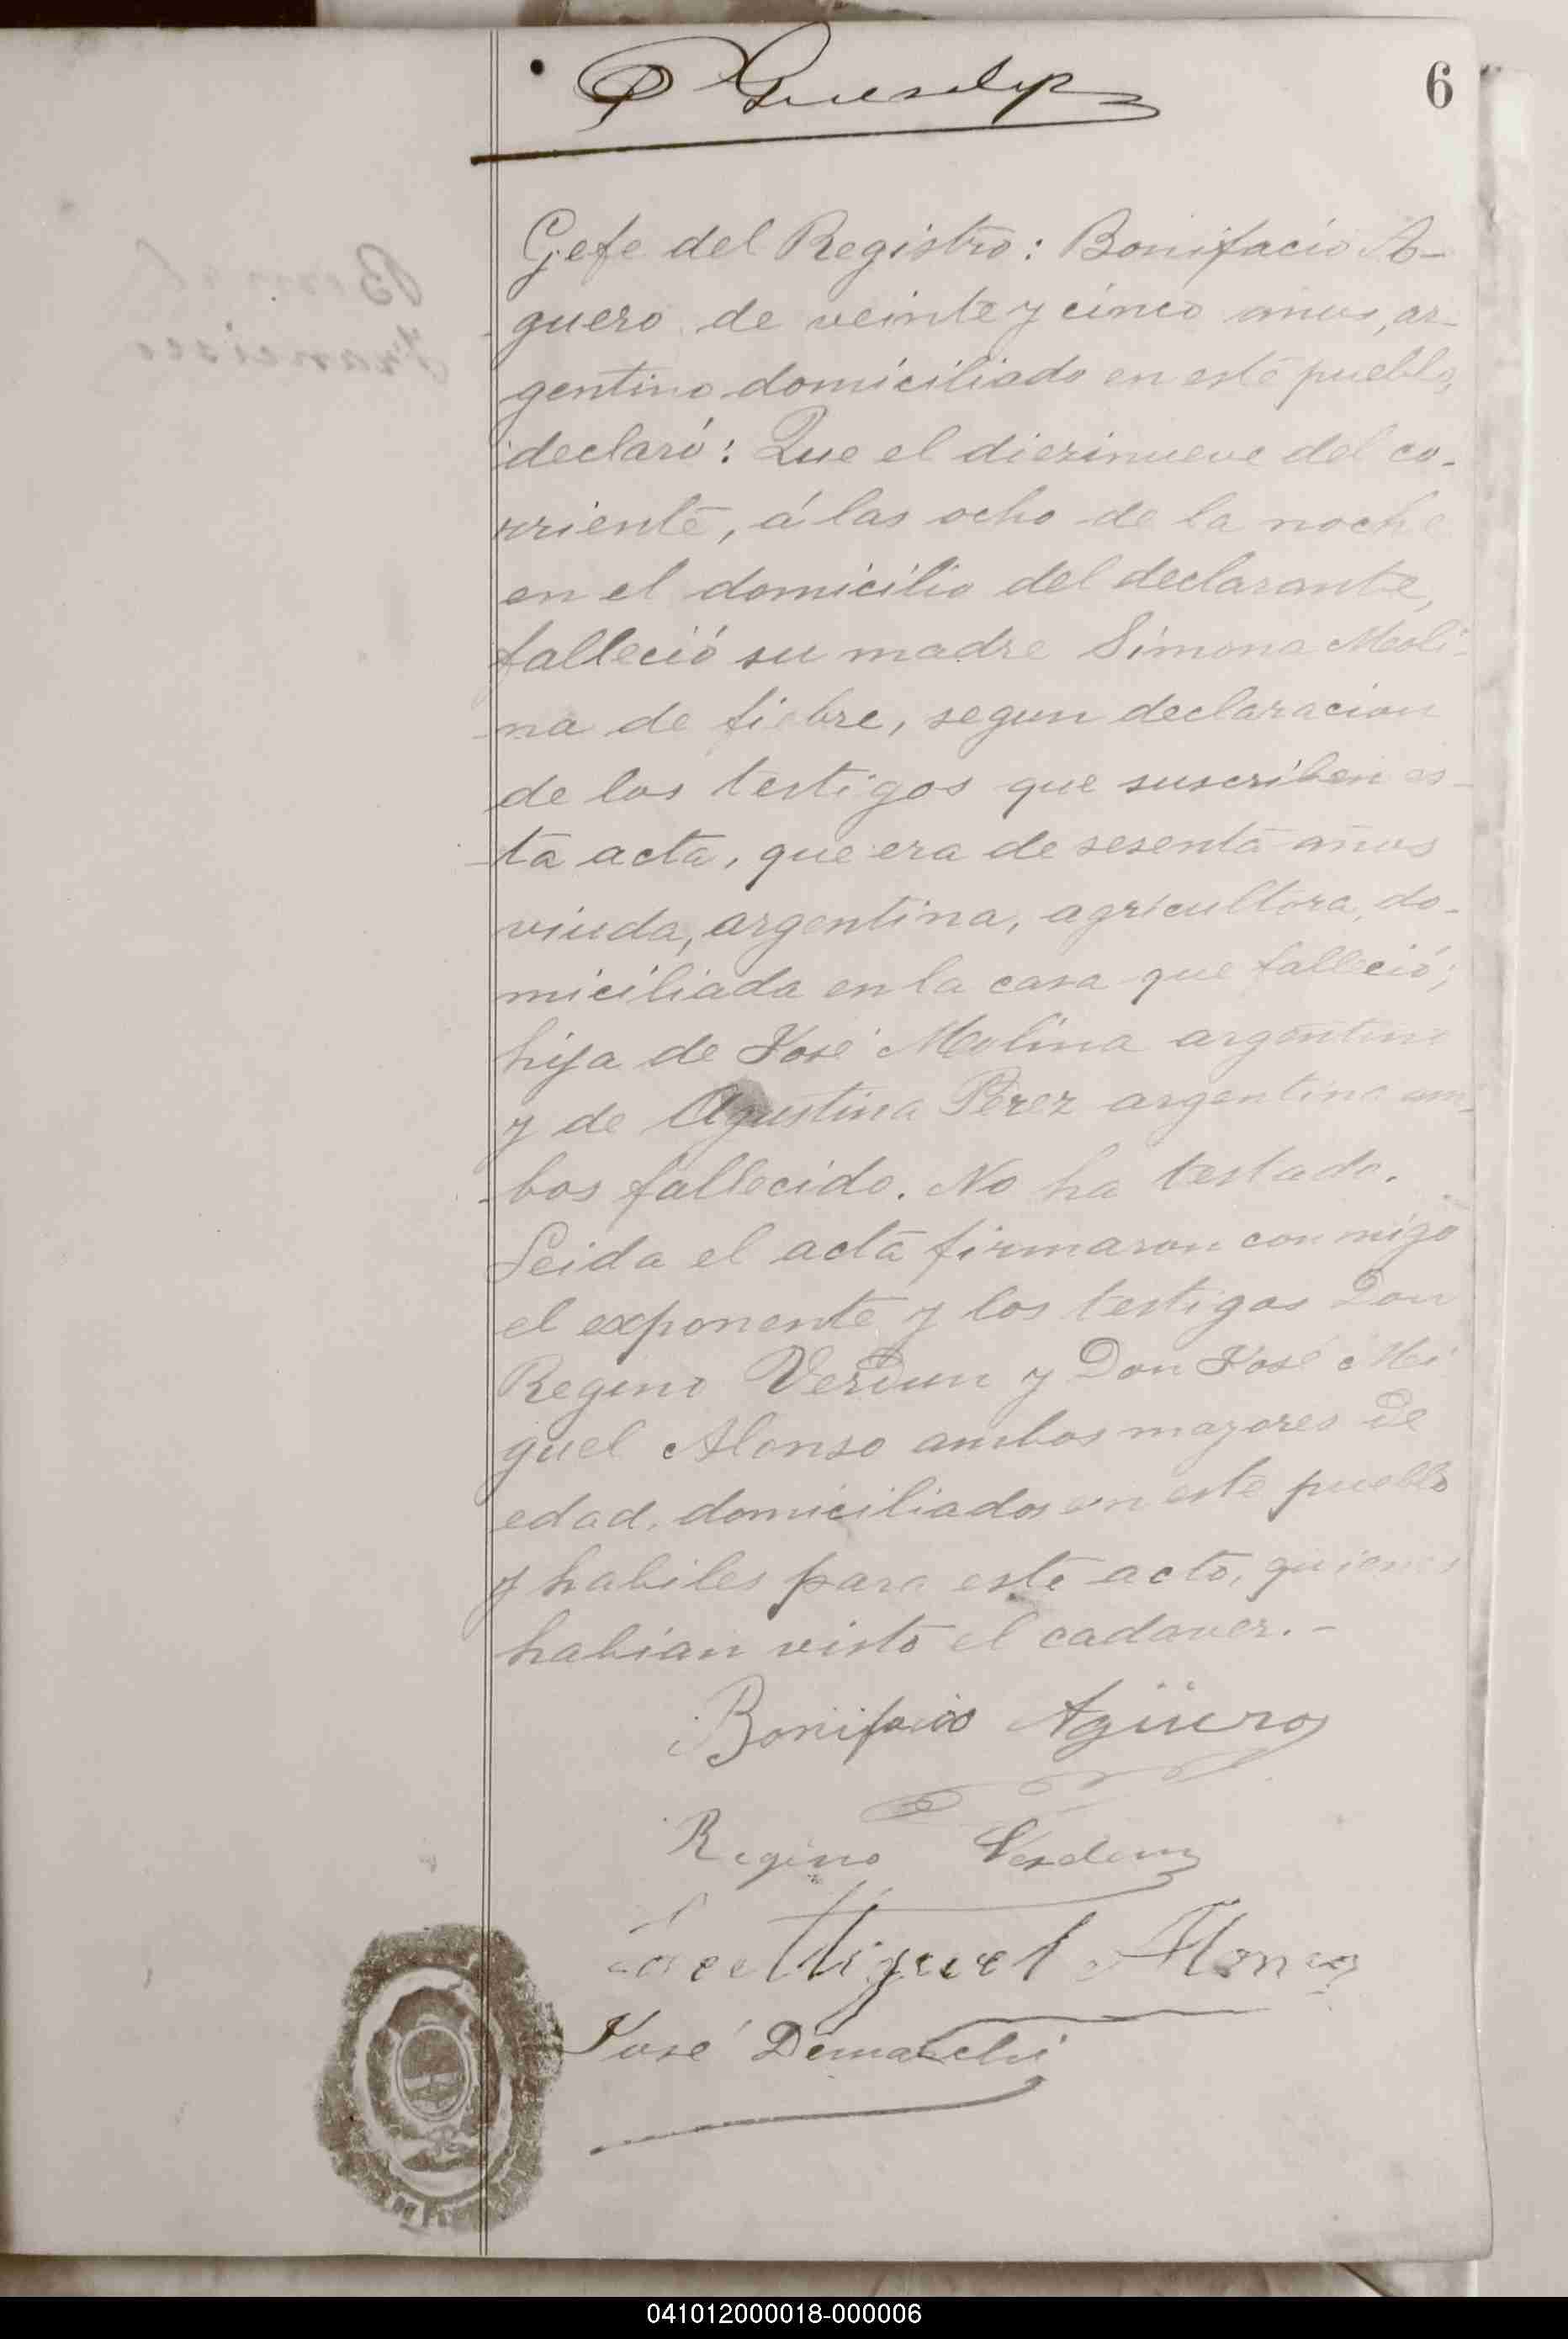 6
Gefe del Registro: Bonifacio A-
guero de veinte y cinco años, ar-
gentino domiciliado en este pueblo,
declaró: Que el diezinueve del co-
rriente, á las ocho de la noche
en el domicilio del declarante,
falleció su madre Simona Moli-
na de fiebre, segun declaracion
de los testigos que suscriben es-
ta acta, que era de sesenta años
viuda, argentina, agricultora, do-
miciliada en la casa que falleció;
hija de José Molina argentino
y de Agustina Pérez argentina am-
bos fallecido. No ha testado.
Leida el acta firmaron conmigo
el exponente y los testigos Don
Regino Verdun y Don José Mi
guel Alonso ambos mayores de
edad, domiciliados en este pueblo
y habiles para este acto, quienes
habian visto el cadaver.-
Bonifacio Agüero
Regino Verdun
Jose Miguel Alonso
José Demarchi
041012000018-000006